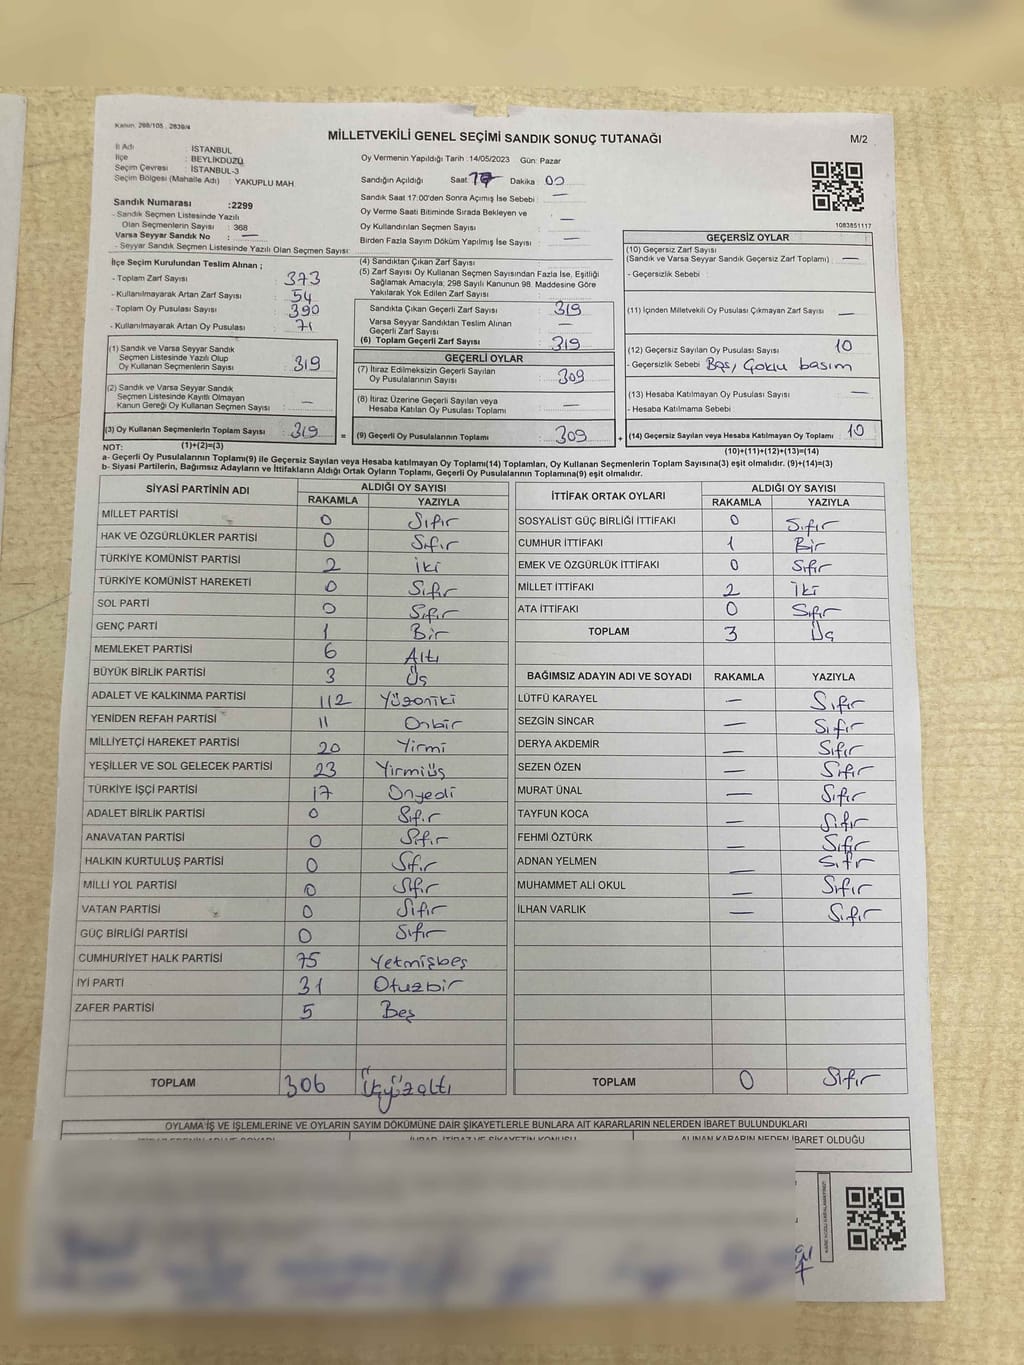 Kanun: 298/105 , 2839/4
MİLLETVEKİLİ GENEL SEÇİMİ SANDIK SONUÇ TUTANAĞI
M/2
İl Adı : İSTANBUL
İlçe : BEYLİKDÜZÜ
Seçim Çevresi : İSTANBUL-3
Seçim Bölgesi (Mahalle Adı) : YAKUPLU MAH
Oy Vermenin Yapıldığı Tarih :14/05/2023 Gün: Pazar
Sandığın Açıldığı Saat 17 Dakika 00
Sandık Saat 17:00'den Sonra Açılmış İse Sebebi : —
Oy Verme Saati Bitiminde Sırada Bekleyen ve
Oy Kullandırılan Seçmen Sayısı : —
Birden Fazla Sayım Döküm Yapılmış İse Sayısı : —
1083851117
Sandık Numarası :2299
- Sandık Seçmen Listesinde Yazılı
Olan Seçmenlerin Sayısı : 368
Varsa Seyyar Sandık No : —
- Seyyar Sandık Seçmen Listesinde Yazılı Olan Seçmen Sayısı:
İlçe Seçim Kurulundan Teslim Alınan ;
- Toplam Zarf Sayısı : 373
- Kullanılmayarak Artan Zarf Sayısı : 54
- Toplam Oy Pusulası Sayısı : 390
- Kullanılmayarak Artan Oy Pusulası : 71
(1) Sandık ve Varsa Seyyar Sandık
Seçmen Listesinde Yazılı Olup
Oy Kullanan Seçmenlerin Sayısı : 319
(2) Sandık ve Varsa Seyyar Sandık
Seçmen Listesinde Kayıtlı Olmayan
Kanun Gereği Oy Kullanan Seçmen Sayısı : —
(3) Oy Kullanan Seçmenlerin Toplam Sayısı : 319
(4) Sandıktan Çıkan Zarf Sayısı :
(5) Zarf Sayısı Oy Kullanan Seçmen Sayısından Fazla İse, Eşitliği
Sağlamak Amacıyla; 298 Sayılı Kanunun 98. Maddesine Göre
Yakılarak Yok Edilen Zarf Sayısı :
Sandıkta Çıkan Geçerli Zarf Sayısı : 319
Varsa Seyyar Sandıktan Teslim Alınan
Geçerli Zarf Sayısı : —
(6) Toplam Geçerli Zarf Sayısı : 319
GEÇERLİ OYLAR
(7) İtiraz Edilmeksizin Geçerli Sayılan
Oy Pusulalarının Sayısı : 309
(8) İtiraz Üzerine Geçerli Sayılan veya
Hesaba Katılan Oy Pusulası Toplamı : —
= (9) Geçerli Oy Pusulalarının Toplamı : 309
GEÇERSİZ OYLAR
(10) Geçersiz Zarf Sayısı
(Sandık ve Varsa Seyyar Sandık Geçersiz Zarf Toplamı) : —
- Geçersizlik Sebebi :
(11) İçinden Milletvekili Oy Pusulası Çıkmayan Zarf Sayısı : —
(12) Geçersiz Sayılan Oy Pusulası Sayısı : 10
- Geçersizlik Sebebi : Boş, Çoklu basım
(13) Hesaba Katılmayan Oy Pusulası Sayısı : —
- Hesaba Katılmama Sebebi :
+ (14) Geçersiz Sayılan veya Hesaba Katılmayan Oy Toplamı : 10
NOT: (1)+(2)=(3)
(10)+(11)+(12)+(13)=(14)
a- Geçerli Oy Pusulalarının Toplamı(9) ile Geçersiz Sayılan veya Hesaba katılmayan Oy Toplamı(14) Toplamları, Oy Kullanan Seçmenlerin Toplam Sayısına(3) eşit olmalıdır. (9)+(14)=(3)
b- Siyasi Partilerin, Bağımsız Adayların ve İttifakların Aldığı Ortak Oyların Toplamı, Geçerli Oy Pusulalarının Toplamına(9) eşit olmalıdır.
SİYASİ PARTİNİN ADI ALDIĞI OY SAYISI
RAKAMLA YAZIYLA
MİLLET PARTİSİ 0 Sıfır
HAK VE ÖZGÜRLÜKLER PARTİSİ 0 Sıfır
TÜRKİYE KOMÜNİST PARTİSİ 2 İki
TÜRKİYE KOMÜNİST HAREKETİ 0 Sıfır
SOL PARTİ 0 Sıfır
GENÇ PARTİ 1 Bir
MEMLEKET PARTİSİ 6 Altı
BÜYÜK BİRLİK PARTİSİ 3 Üç
ADALET VE KALKINMA PARTİSİ 112 Yüzoniki
YENİDEN REFAH PARTİSİ 11 Onbir
MİLLİYETÇİ HAREKET PARTİSİ 20 Yirmi
YEŞİLLER VE SOL GELECEK PARTİSİ 23 Yirmiüç
TÜRKİYE İŞÇİ PARTİSİ 17 Onyedi
ADALET BİRLİK PARTİSİ 0 Sıfır
ANAVATAN PARTİSİ 0 Sıfır
HALKIN KURTULUŞ PARTİSİ 0 Sıfır
MİLLİ YOL PARTİSİ 0 Sıfır
VATAN PARTİSİ 0 Sıfır
GÜÇ BİRLİĞİ PARTİSİ 0 Sıfır
CUMHURİYET HALK PARTİSİ 75 Yetmişbeş
İYİ PARTİ 31 Otuzbir
ZAFER PARTİSİ 5 Beş
TOPLAM 306 Üçyüzaltı
İTTİFAK ORTAK OYLARI ALDIĞI OY SAYISI
RAKAMLA YAZIYLA
SOSYALİST GÜÇ BİRLİĞİ İTTİFAKI 0 Sıfır
CUMHUR İTTİFAKI 1 Bir
EMEK VE ÖZGÜRLÜK İTTİFAKI 0 Sıfır
MİLLET İTTİFAKI 2 İki
ATA İTTİFAKI 0 Sıfır
TOPLAM 3 Üç
BAĞIMSIZ ADAYIN ADI VE SOYADI RAKAMLA YAZIYLA
LÜTFÜ KARAYEL — Sıfır
SEZGİN SİNCAR — Sıfır
DERYA AKDEMİR — Sıfır
SEZEN ÖZEN — Sıfır
MURAT ÜNAL — Sıfır
TAYFUN KOCA — Sıfır
FEHMİ ÖZTÜRK — Sıfır
ADNAN YELMEN — Sıfır
MUHAMMET ALİ OKUL — Sıfır
İLHAN VARLIK — Sıfır
TOPLAM 0 Sıfır
OYLAMA İŞ VE İŞLEMLERİNE VE OYLARIN SAYIM DÖKÜMÜNE DAİR ŞİKAYETLERLE BUNLARA AİT KARARLARIN NELERDEN İBARET BULUNDUKLARI
ALINAN KARARIN NEDEN İBARET OLDUĞU